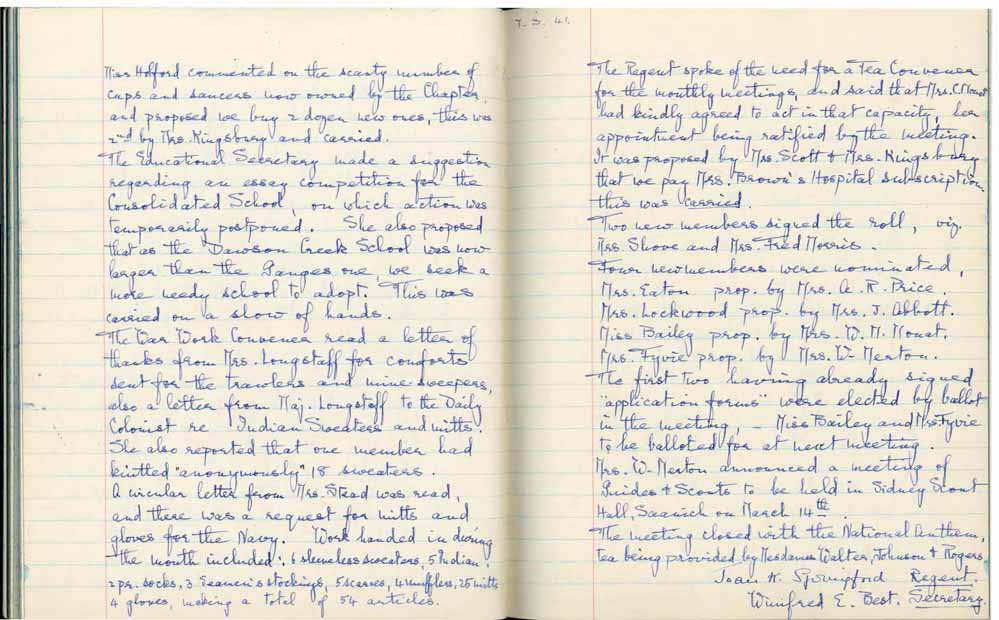 7. 3. 41.
Miss Holford commented on the scasty number of
cups and saucers now owned by the Chapter,
and proposed we buy 2 dozen new ones, this was
2nd by Mrs. Kingsbury and carried.
The Educational Secretary made a suggestion
regarding an essay competition for the
Consolidated School, on which action was
temporerily postponed. She also proposed
that as the Dawson Creek School was now
larger than the Ganges one, we seek a
more needy school to adopt. This was
carried on a show of hands.
The War Work Convener read a letter of
thanks from Mrs. Longstaff for comforts
sent for the trawlers and mine sweepers,
also a letter from Maj. Longstaff to the Daily
Colonist re Indian Sweaters and mitts.
She also reported that one member had
knitted "anonymously" 18 sweaters.
A circular letter from Mrs. Stead was read,
and there was a request for mitts and
gloves for the Navy. Work handed in during
the month included: 6 sleeveless sweaters, 5 Indian,
2 pr. socks, 3 Seamen's stockings, 5 scarves, 4 mufflers, 25 mitts
4 gloves, making a total of 54 articles.
The Regent spoke of the need for a Tea Convener
for the monthly meetings, and said that Mrs. C. Mouat
had kindly agreed to act in that capacity, her
appointment being ratified by the meeting.
It was proposed by Mrs. Scott & Mrs. Kingsbury
that we pay Mrs. Brown's Hospital subscription.
this was carried.
Two new members signed the roll, viz.
Mrs. Shove and Mrs. Fred Morris.
Four new members were nominated,
Mrs. Eaton prop. by Mrs. A. R. Price.
Mrs. Lockwood prop. by Mrs. J. Abbott.
Miss Bailey prop. by Mrs. W. M. Mouat.
Mrs. Fyvie prop. by Mrs. W. Norton.
The first two having already signed
"application forms" were elected by ballot
in the meeting, – Miss Bailey and Mrs Fyvie
to be balloted for at next meeting.
Mrs. W. Norton announced a meeting of
Guides & Scouts to be held in Sidney Scout
Hall, Saanich on March 14th.
The meeting closed with the National Anthem,
tea being provided by Mesdames Walter, Johnson & Rogers.
Joan K. Springford Regent.
Winifred E. Best. Secretary.